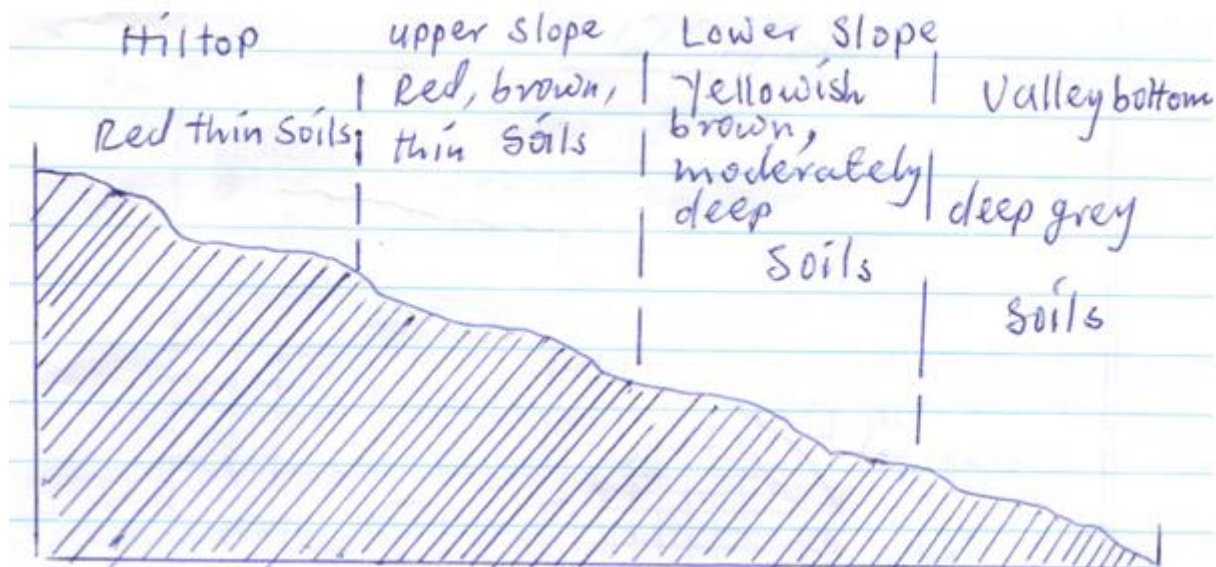 Hiltop
Red thin Soils
upper slope
Red, brown,
thin Soils
Lower Slope
Yellowish
brown,
moderately
deep
Soils
Valley bottom
deep grey
Soils